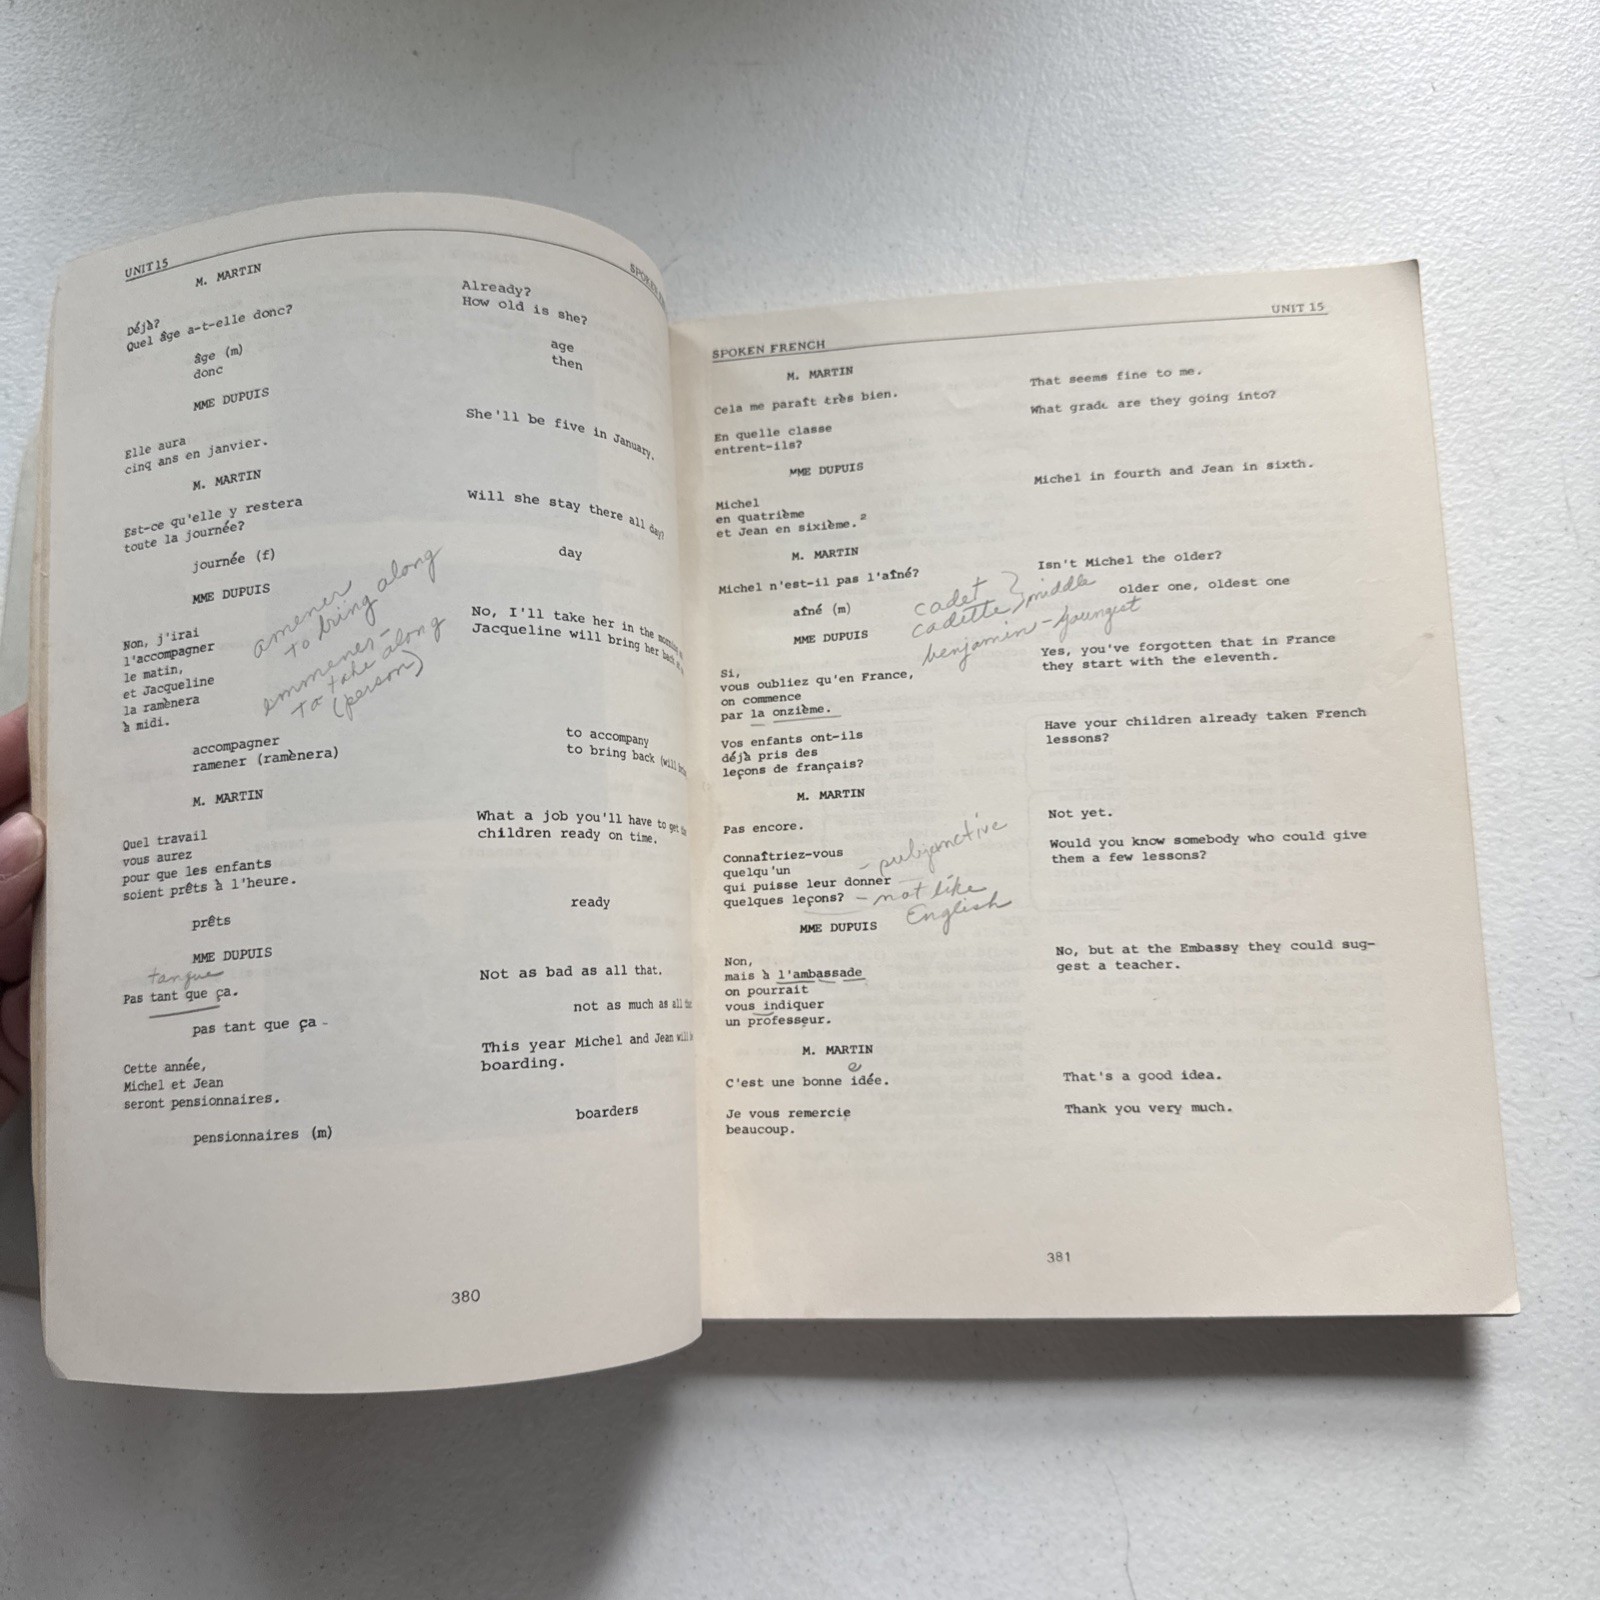 UNIT 15
M. MARTIN
Déjà?
Already?
Quel âge a-t-elle donc?
How old is she?
âge (m)
age
donc
then
MME DUPUIS
Elle aura
She'll be five in January.
cinq ans en janvier.
M. MARTIN
Est-ce qu'elle y restera
Will she stay there all day?
toute la journée?
journée (f)
day
MME DUPUIS
amener
to bring along
emmener-
to take along
(person)
Non, j'irai
No, I'll take her in the morning
l'accompagner
Jacqueline will bring her back
le matin,
et Jacqueline
la ramènera
à midi.
accompagner
to accompany
ramener (ramènera)
to bring back (will
M. MARTIN
Quel travail
What a job you'll have to get
vous aurez
children ready on time.
pour que les enfants
soient prêts à l'heure.
prêts
ready
MME DUPUIS
tangue
Pas tant que ça.
Not as bad as all that.
pas tant que ça -
not as much as all
Cette année,
This year Michel and Jean will
Michel et Jean
boarding.
seront pensionnaires.
pensionnaires (m)
boarders
380
SPOKEN FRENCH
UNIT 15
M. MARTIN
Cela me paraît très bien.
That seems fine to me.
En quelle classe
What grade are they going into?
entrent-ils?
MME DUPUIS
Michel
Michel in fourth and Jean in sixth.
en quatrième
et Jean en sixième.2
M. MARTIN
Michel n'est-il pas l'aîné?
Isn't Michel the older?
aîné (m)
older one, oldest one
cadet
cadette } middle
benjamin - youngest
MME DUPUIS
Si,
Yes, you've forgotten that in France
vous oubliez qu'en France,
they start with the eleventh.
on commence
par la onzième.
Vos enfants ont-ils
Have your children already taken French
déjà pris des
lessons?
leçons de français?
M. MARTIN
Pas encore.
Not yet.
Connaîtriez-vous
Would you know somebody who could give
quelqu'un
them a few lessons?
qui puisse leur donner
- subjunctive
quelques leçons?
- not like
English
MME DUPUIS
Non,
No, but at the Embassy they could sug-
mais à l'ambassade
gest a teacher.
on pourrait
vous indiquer
un professeur.
M. MARTIN
e
C'est une bonne idée.
That's a good idea.
Je vous remercie
Thank you very much.
beaucoup.
381